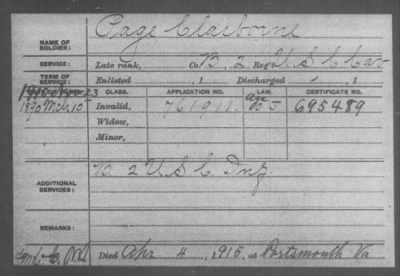 NAME OF SOLDIER: Page Claiborne
SERVICE: Late rank, Co. B, 2 Reg't U S C Cav
TERM OF SERVICE: Enlisted , 1 Discharged , 1
CLASS. APPLICATION NO. LAW. CERTIFICATE NO.
1890 Mch 10 Invalid, 761911 Age J 695489
Widow,
Minor,
ADDITIONAL SERVICES: 2 U S C Inf.
REMARKS:
Died Apr 4, 1915, at Portsmouth Va